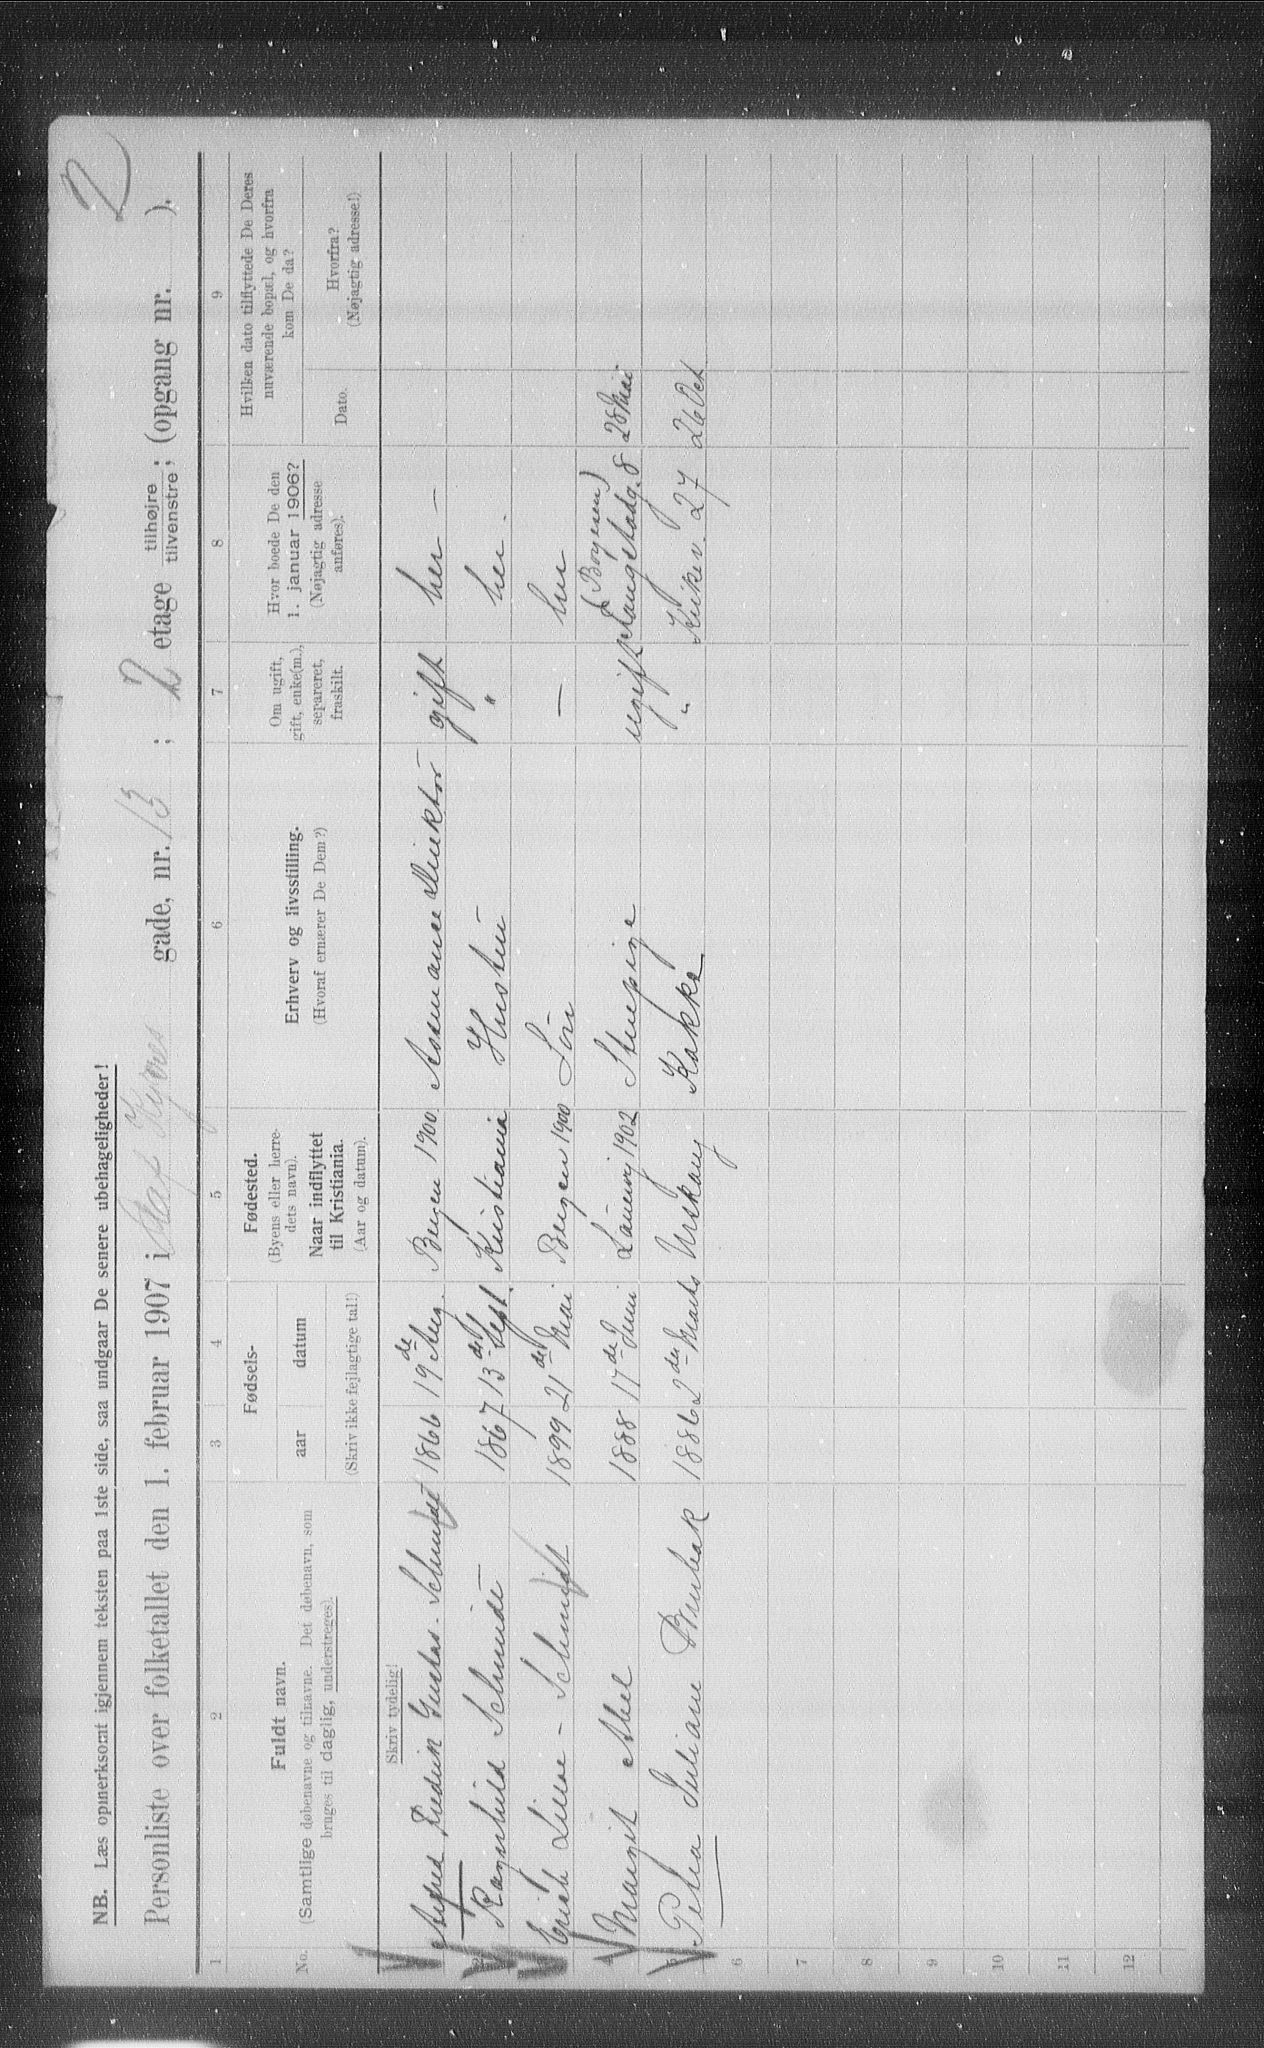 2
NB. Læs opmerksomt igjennem teksten paa 1ste side, saa undgaar De senere ubehageligheder!
Personliste over folketallet den 1. februar 1907 i Olaf Kyrres gade, nr. 13 ; 2 etage tilhøjre tilvenstre ; (opgang nr. ).
1 2 3 4 5 6 7 8 9
No.
Fuldt navn.
(Samtlige døbenavne og tilnavne. Det døbenavn, som
bruges til daglig, understreges).
Fødsels-
aar datum
(Skriv ikke fejlagtige tal!)
Fødested.
(Byens eller herre-
dets navn).
Naar indflyttet
til Kristiania.
(Aar og datum).
Erhverv og livsstilling.
(Hvoraf ernærer De Dem?)
Om ugift,
gift, enke(m.),
separeret,
fraskilt.
Hvor boede De den
1. januar 1906?
(Nøjagtig adresse
anføres).
Hvilken dato tilflyttede De Deres
nuværende bopæl, og hvorfra
kom De da?
Dato.
Hvorfra?
(Nøjagtig adresse!)
Skriv tydelig!
Fredrik Gustav Schmidt 1866 19de Aug. Bergen 1900 Direktør gift her –
2 Ragnhild Schmidt 1867 13de Sept. Kristiania Hustru " her.
Schmidt 1899 21de Mai Bergen 1900 Søn — her
4 Margit Abel 1888 17de Juni 1902 Stuepige ugift 8 28 Mai
5 Petra Juliane 1886 2den Marts Urskoug Kokke " Kirkev. 27 26 Oct
6
7
8
9
10
11
12